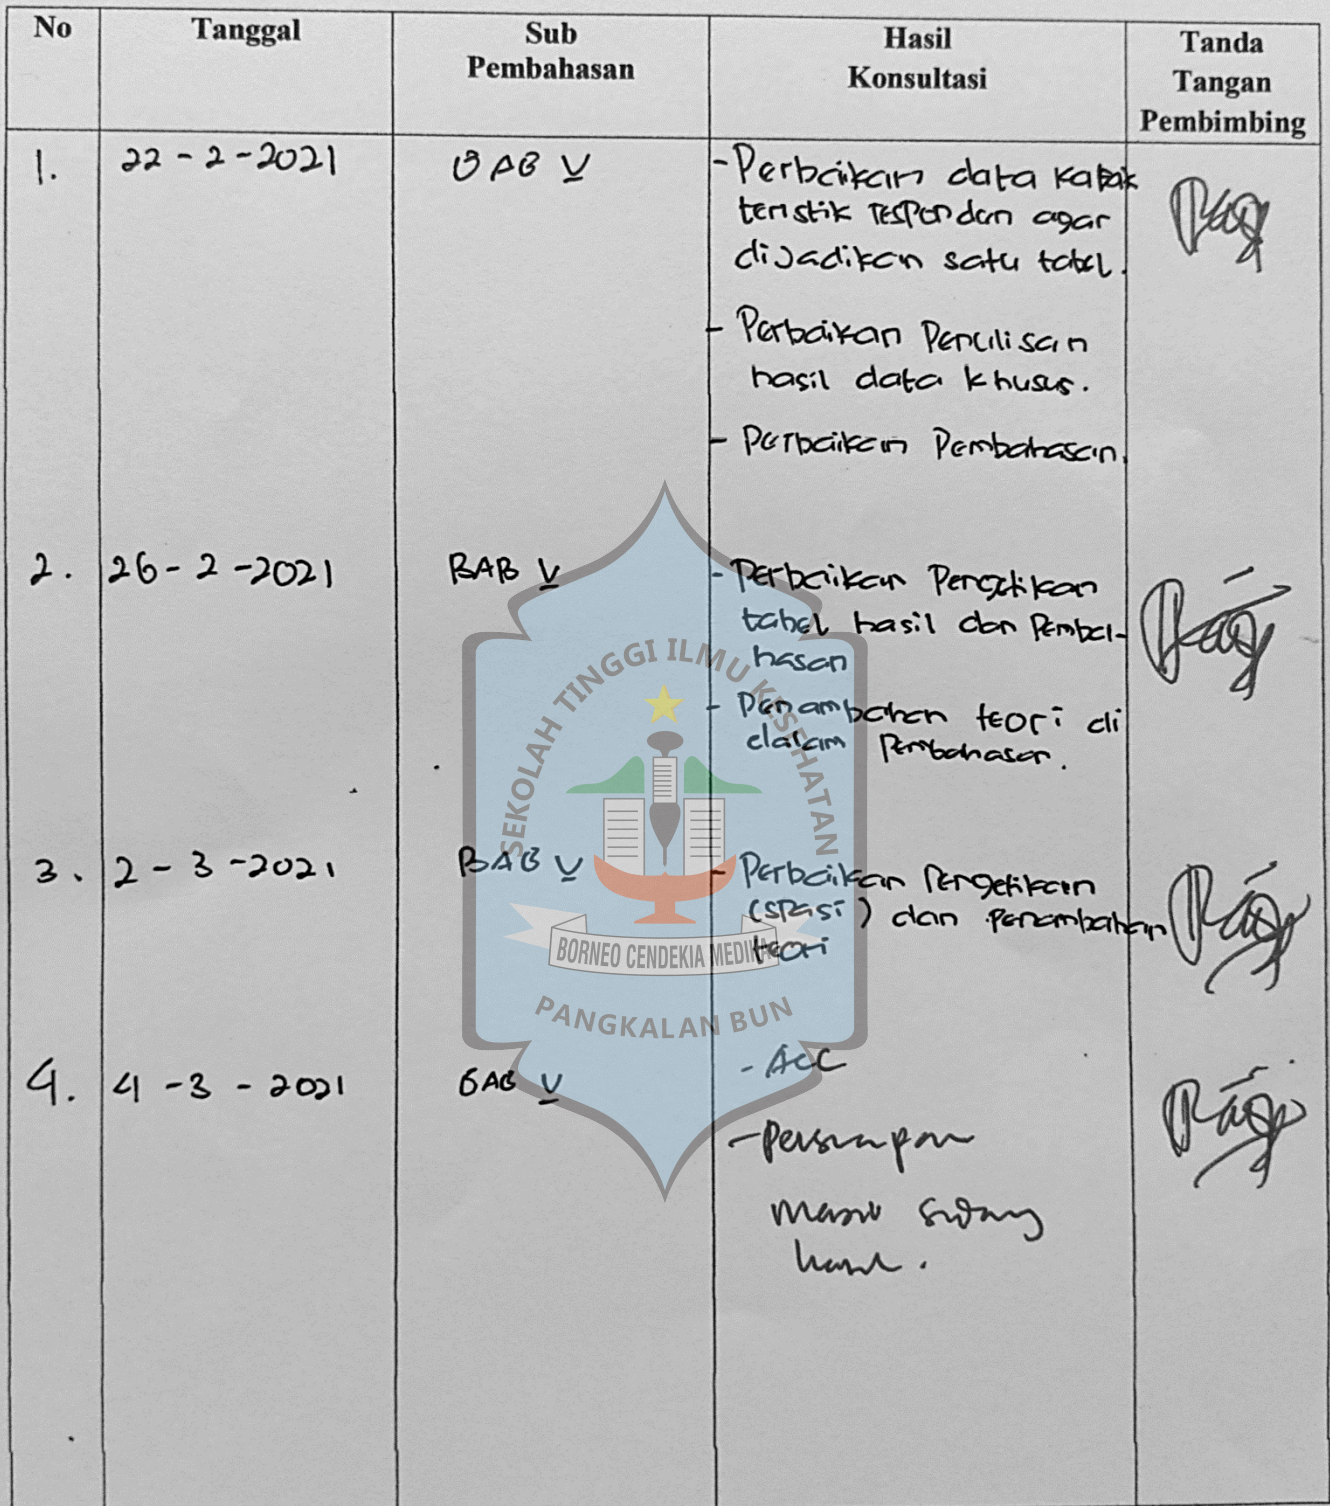 No Tanggal Sub Pembahasan Hasil Konsultasi Tanda Tangan Pembimbing
1. 22 - 2 - 2021 BAB V - Perbaikan data karak
teristik responden agar
dijadikan satu tabel.
- Perbaikan Penulisan
hasil data khusus.
- Perbaikan Pembahasan.
2. 26 - 2 - 2021 BAB V - Perbaikan Pengetikan
tabel hasil dan Pemba-
hasan
- Penambahan teori di
dalam Pembahasan.
3. 2 - 3 - 2021 BAB V - Perbaikan Pengetikan
(spasi) dan penambahan
teori
4. 4 - 3 - 2021 BAB V - ACC
- Persiapan
masuk sidang
hasil.
SEKOLAH TINGGI ILMU KESEHATAN
BORNEO CENDEKIA MEDIKA
PANGKALAN BUN